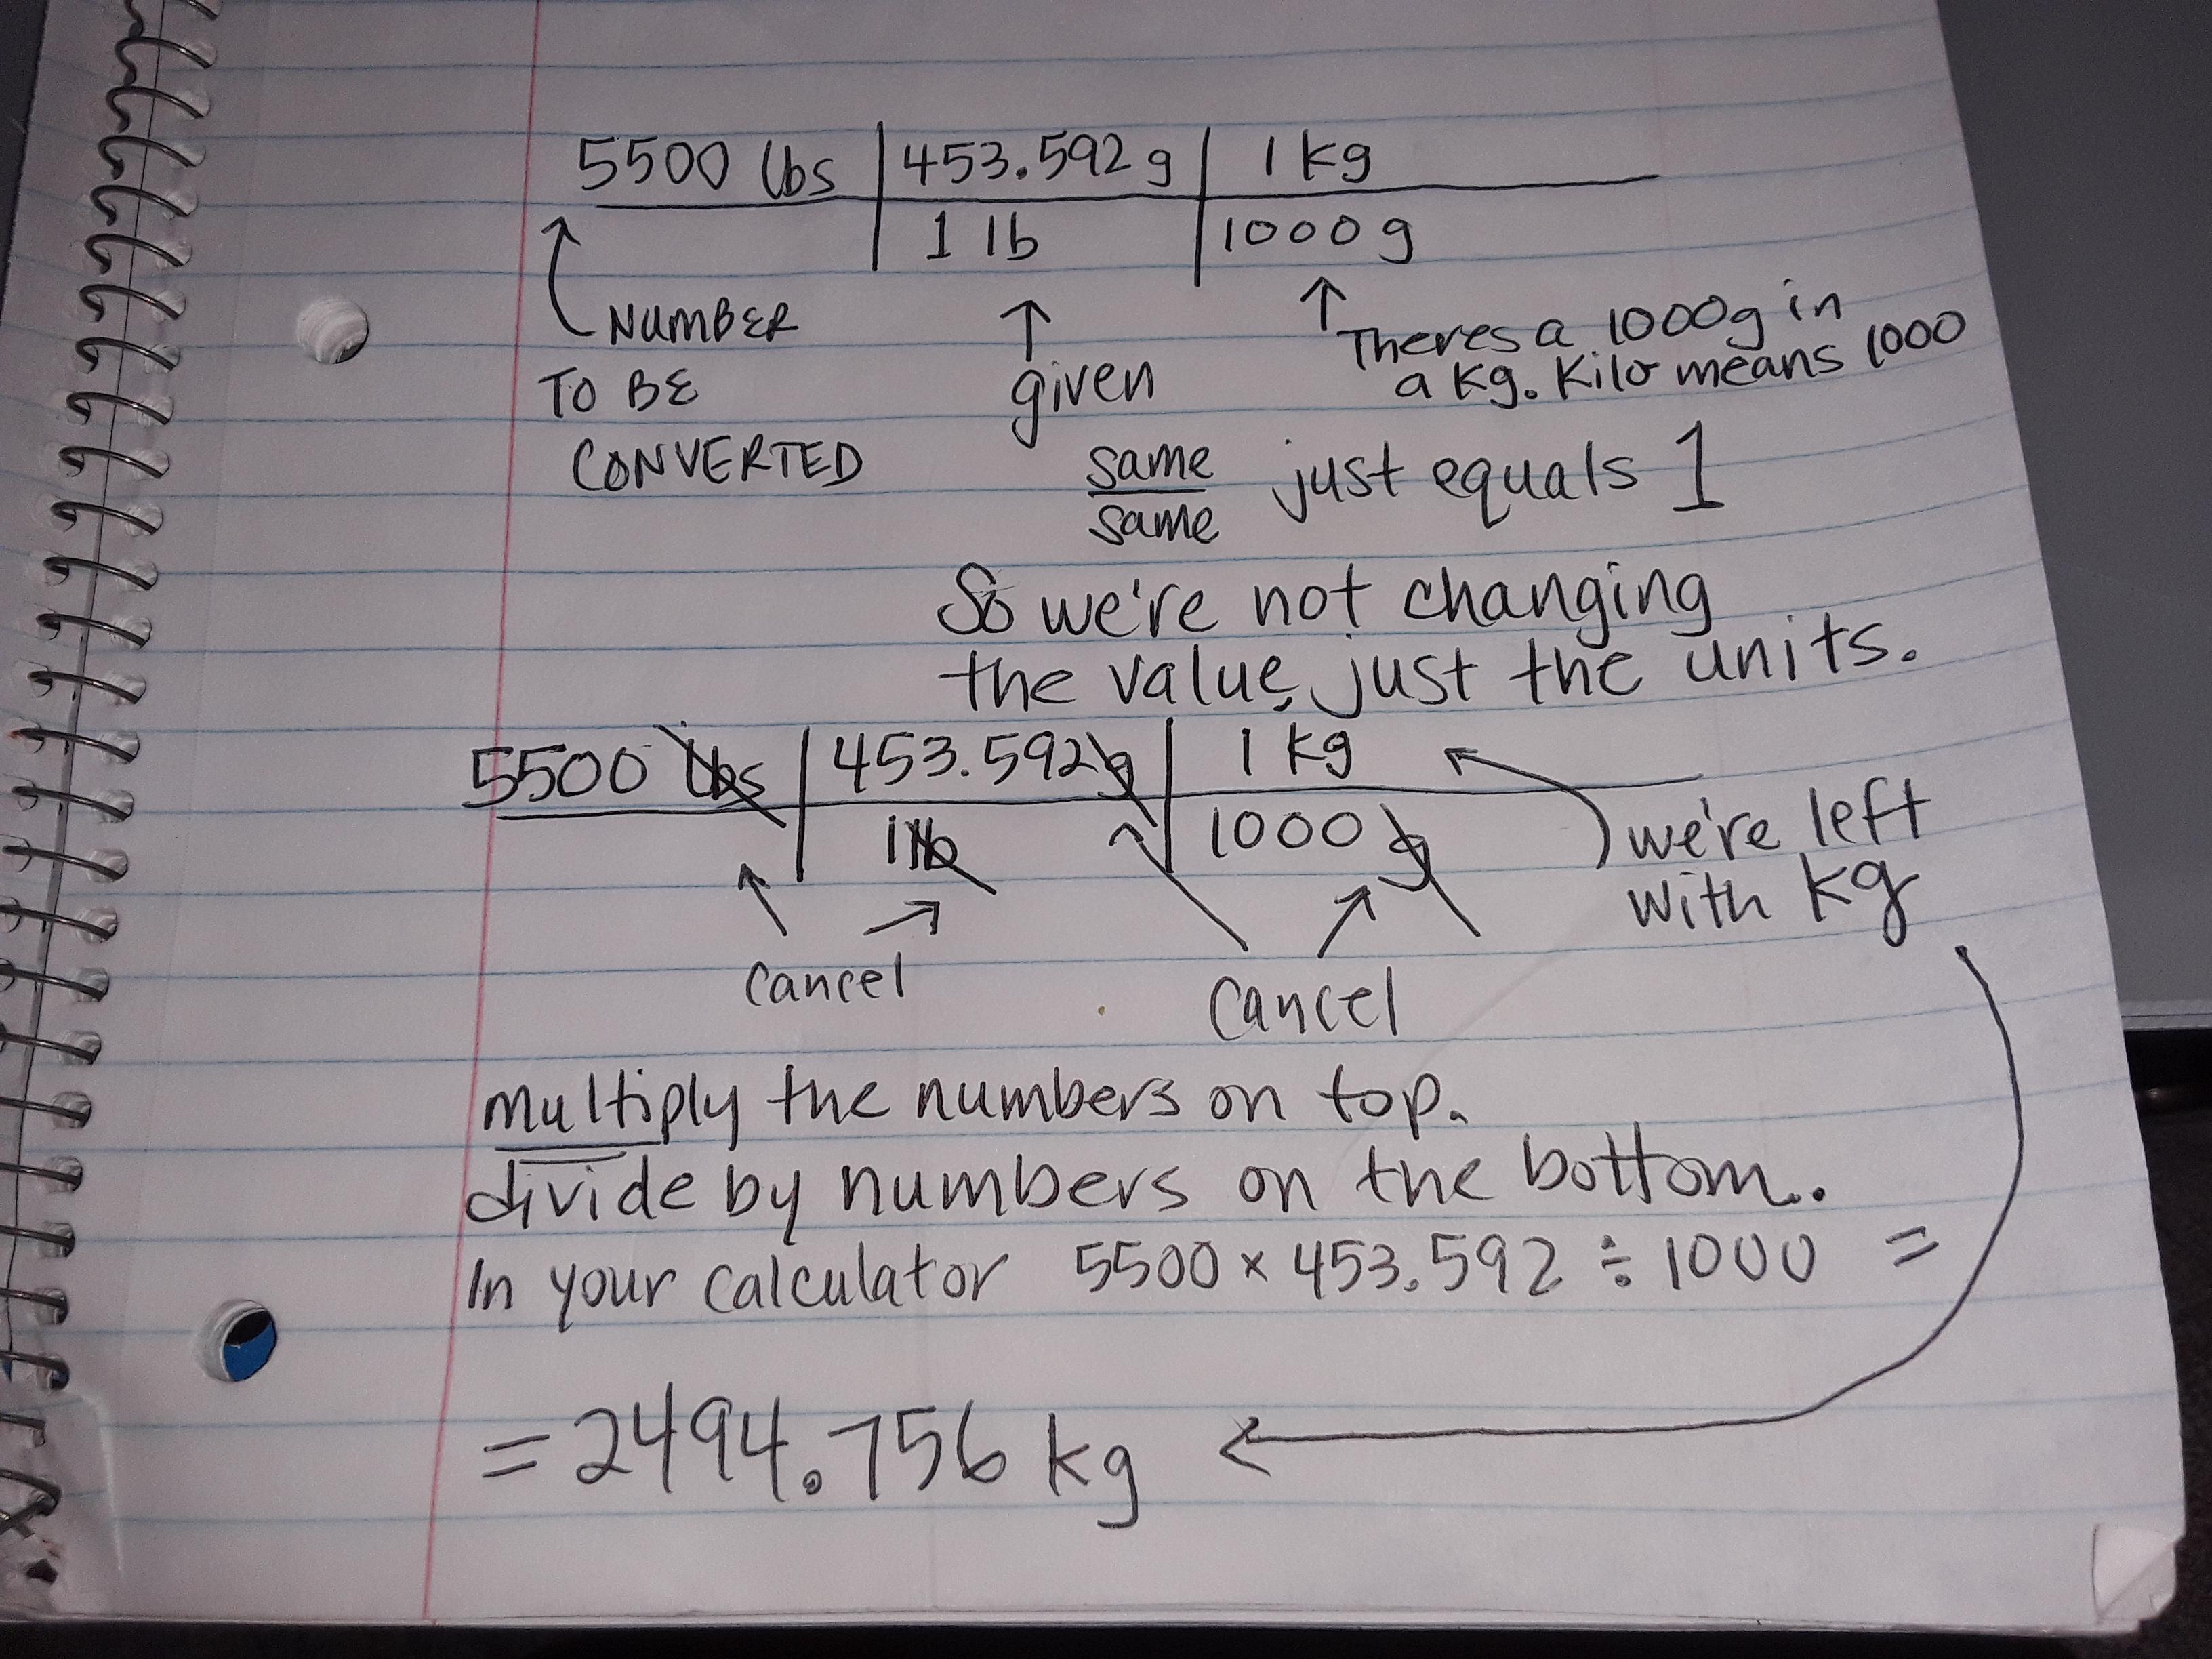 5500 lbs | 453.592 g | 1 kg
1 lb | 1000 g
NUMBER
TO BE
CONVERTED
given
Theres a 1000g in
a kg. Kilo means 1000
same
same
just equals 1
So we're not changing
the value, just the units.
5500 lbs | 453.592g | 1 kg
1 lb | 1000 g
we're left
with kg
cancel
cancel
multiply the numbers on top.
divide by numbers on the bottom..
In your calculator 5500 × 453.592 ÷ 1000 =
= 2494.756 kg